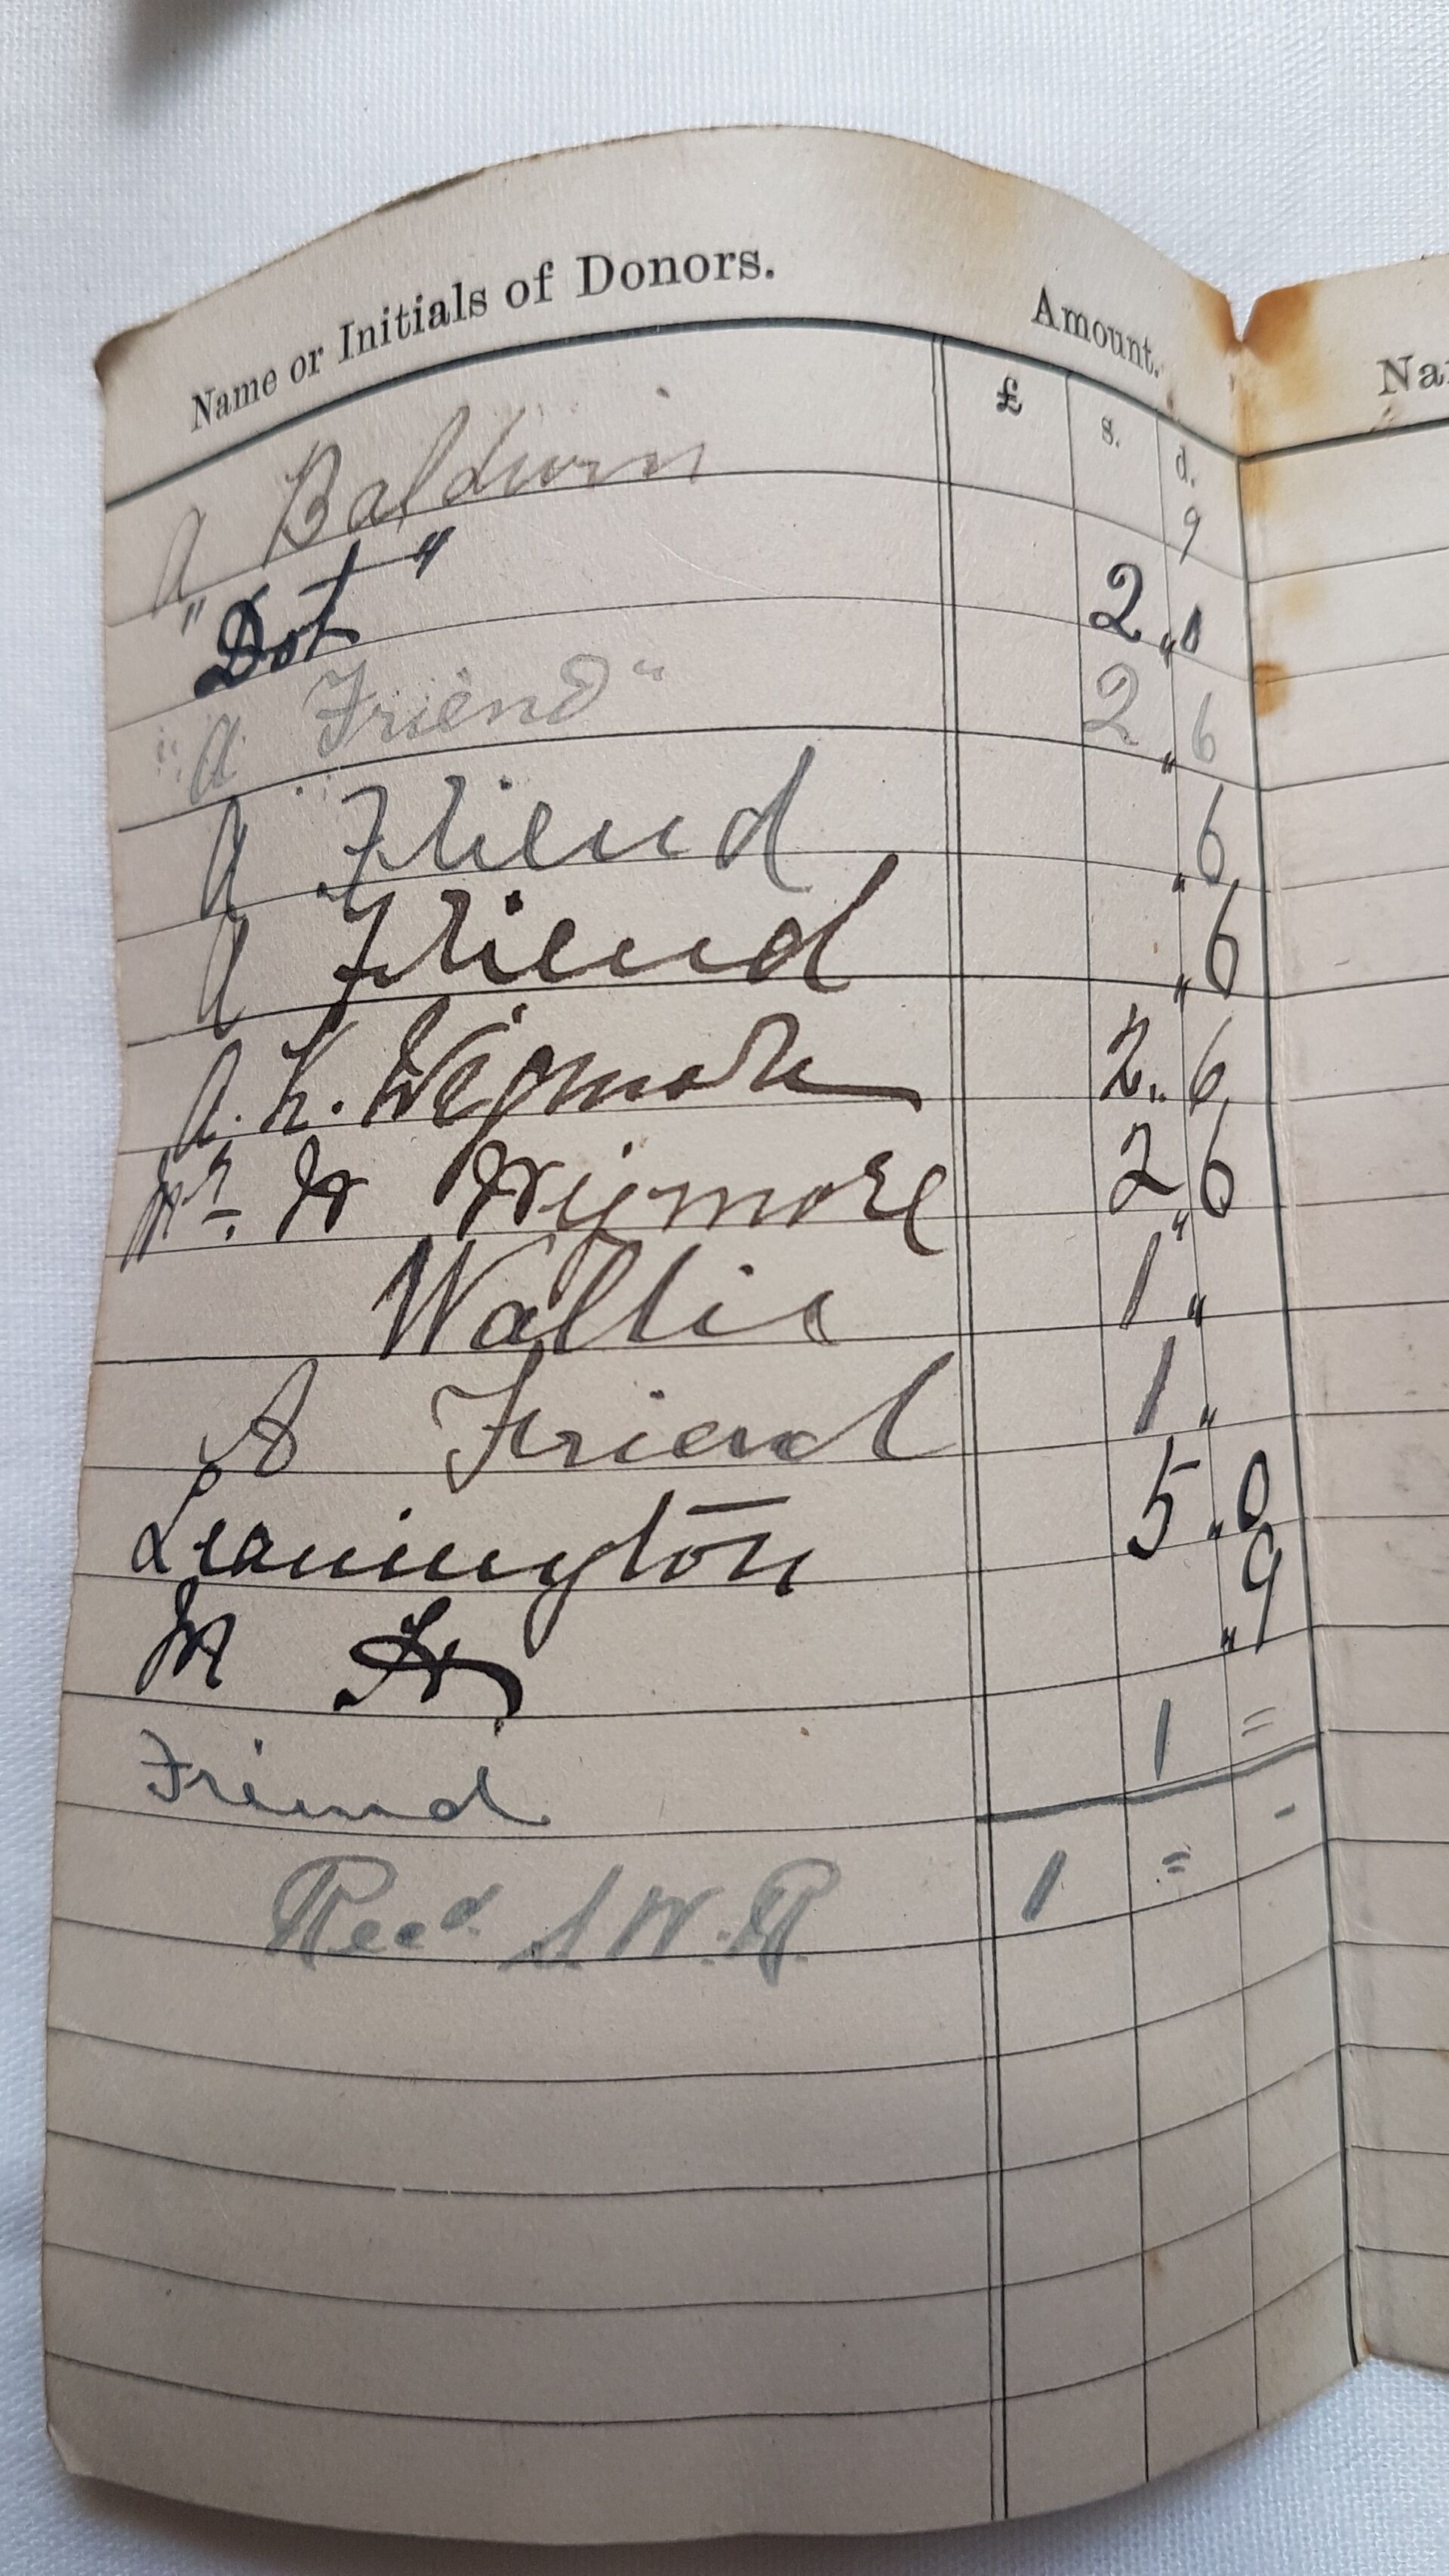 Name or Initials of Donors. Amount. Na
£ s. d.
A Baldwin 9
"Dot" 2 „ 0
"A Friend" 2 „ 6
A Friend „ 6
A Friend „ 6
A. K. Wigmore 2 „ 6
Mr. W Wigmore 2 „ 6
Wallis 1 „
A Friend 1 „
Leamington 5 „ 0
M W „ 9
Friend 1 =
Recd. S. W. R. 1 = -